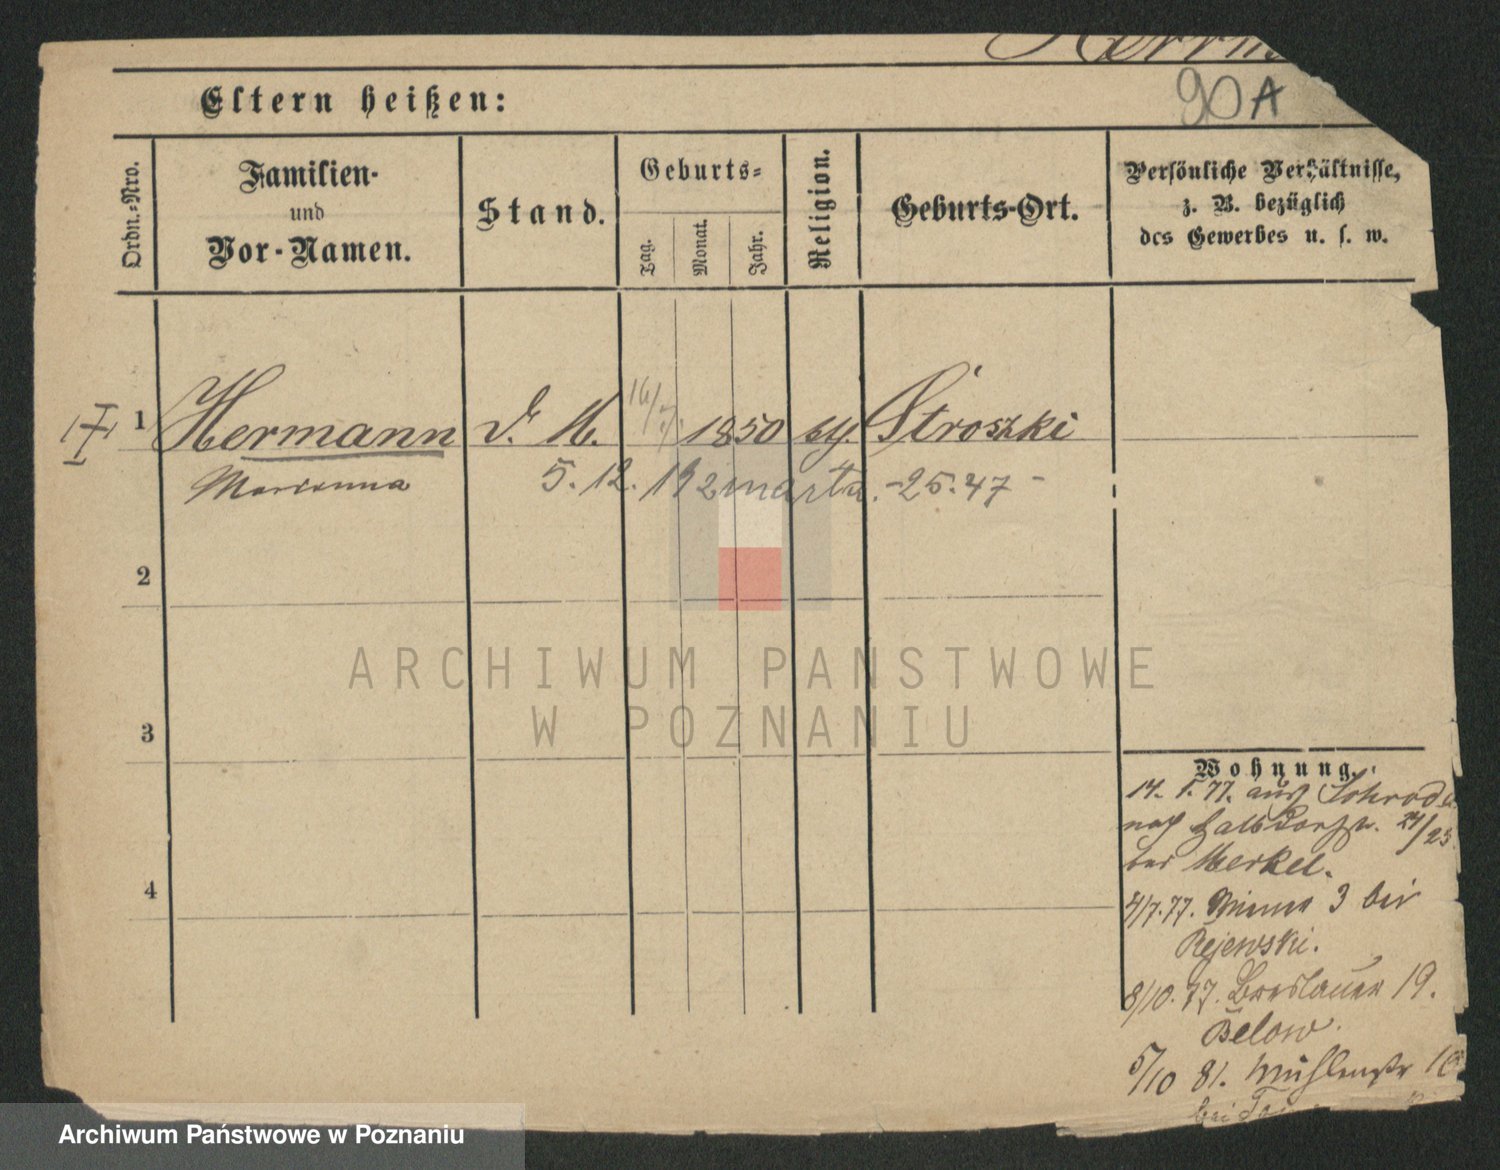 Eltern heißen:
90A
Ordn.-Nro.
Familien-
und
Vor-Namen.
Stand.
Geburts-
Tag.
Monat.
Jahr.
Religion.
Geburts-Ort.
Persönliche Verhältnisse,
z. B. bezüglich
des Gewerbes u. s. w.
1 Hermann d. M. 16/7. 1850 Stroszki
Marianna 5. 12. 1 2 marta. - 25. 47 -
2
3
4
Wohnung.
14. 1. 77. aus Schroda
nach Halbdorfstr. 24/25
bei Merkel.
4/7. 77. 3 bei
Rejewski.
8/10. 77. Breslauer 19.
Below.
5/10 81. Mühlenstr
bei
ARCHIWUM PAŃSTWOWE
W POZNANIU
Archiwum Państwowe w Poznaniu